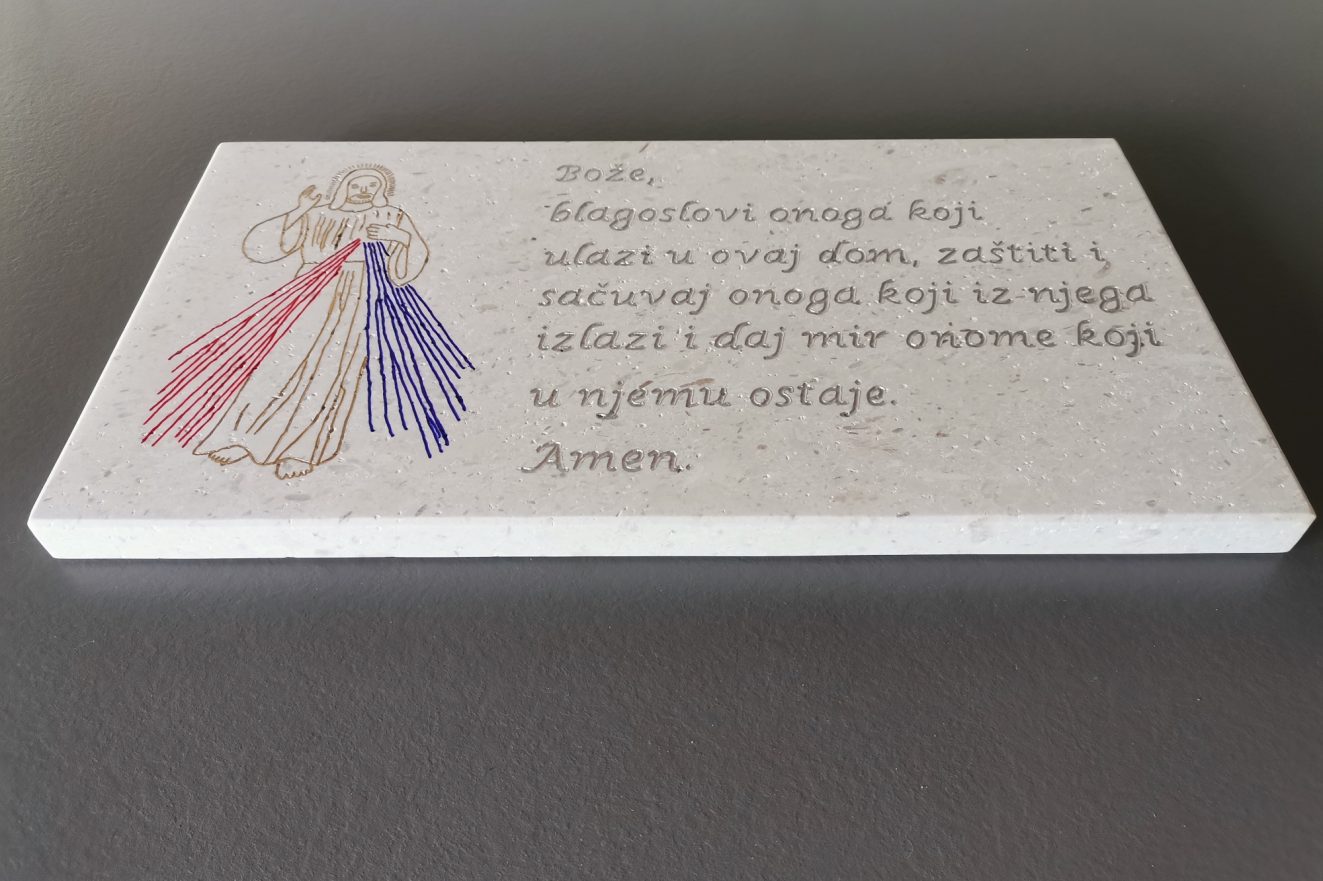 Bože,
blagoslovi onoga koji
ulazi u ovaj dom, zaštiti i
sačuvaj onoga koji iz njega
izlazi i daj mir onome koji
u njemu ostaje.
Amen.